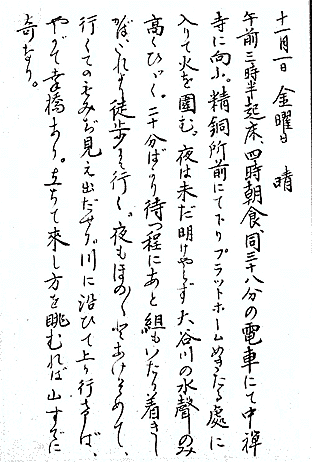 十一月一日 金曜日 晴
午前三時半起床、四時朝食、同三十八分の電車にて中禅
寺に向ふ。精銅所前にて下りプラットホームめきたる處に
入りて火を圍む。夜は未だ明けやらず大谷川の水聲のみ
高くひゞく。二十分ばかり待つ程にあと組もいたり着きし
かば、これより徒歩して行く。夜もほの〴〵とあけそめて、
行くてのもみぢ見え出だせり。川に沿ひて上り行きしば、
やがて幸橋あり。立ちて來し方を眺むれば山すでに
奇なり。